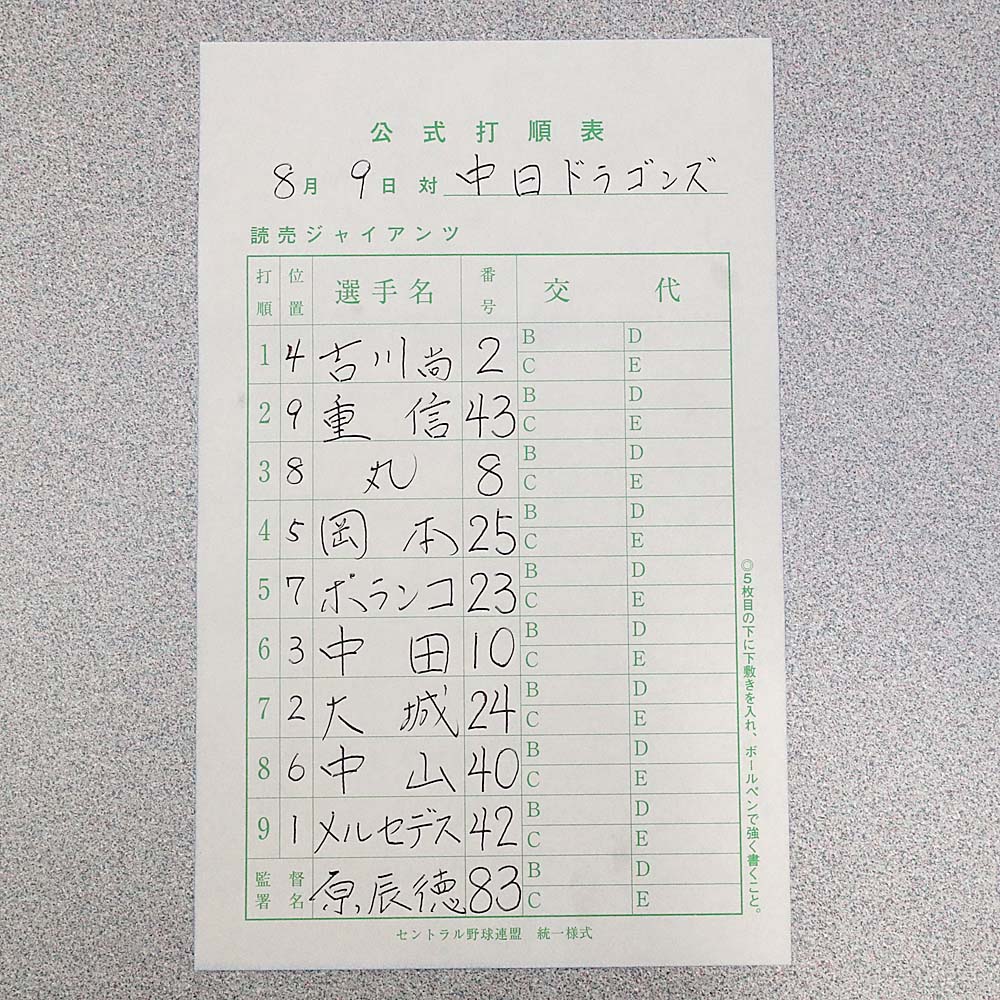 公式打順表
8月 9日 対 中日ドラゴンズ
読売ジャイアンツ
打順 位置 選手名 番号 交代
1 4 吉川尚 2 B D C E
2 9 重信 43 B D C E
3 8 丸 8 B D C E
4 5 岡本 25 B D C E
5 7 ポランコ 23 B D C E
6 3 中田 10 B D C E
7 2 大城 24 B D C E
8 6 中山 40 B D C E
9 1 メルセデス 42 B D C E
監督署名 原辰徳 83 B D C E
◎5枚目の下に下敷きを入れ、ボールペンで強く書くこと。
セントラル野球連盟 統一様式